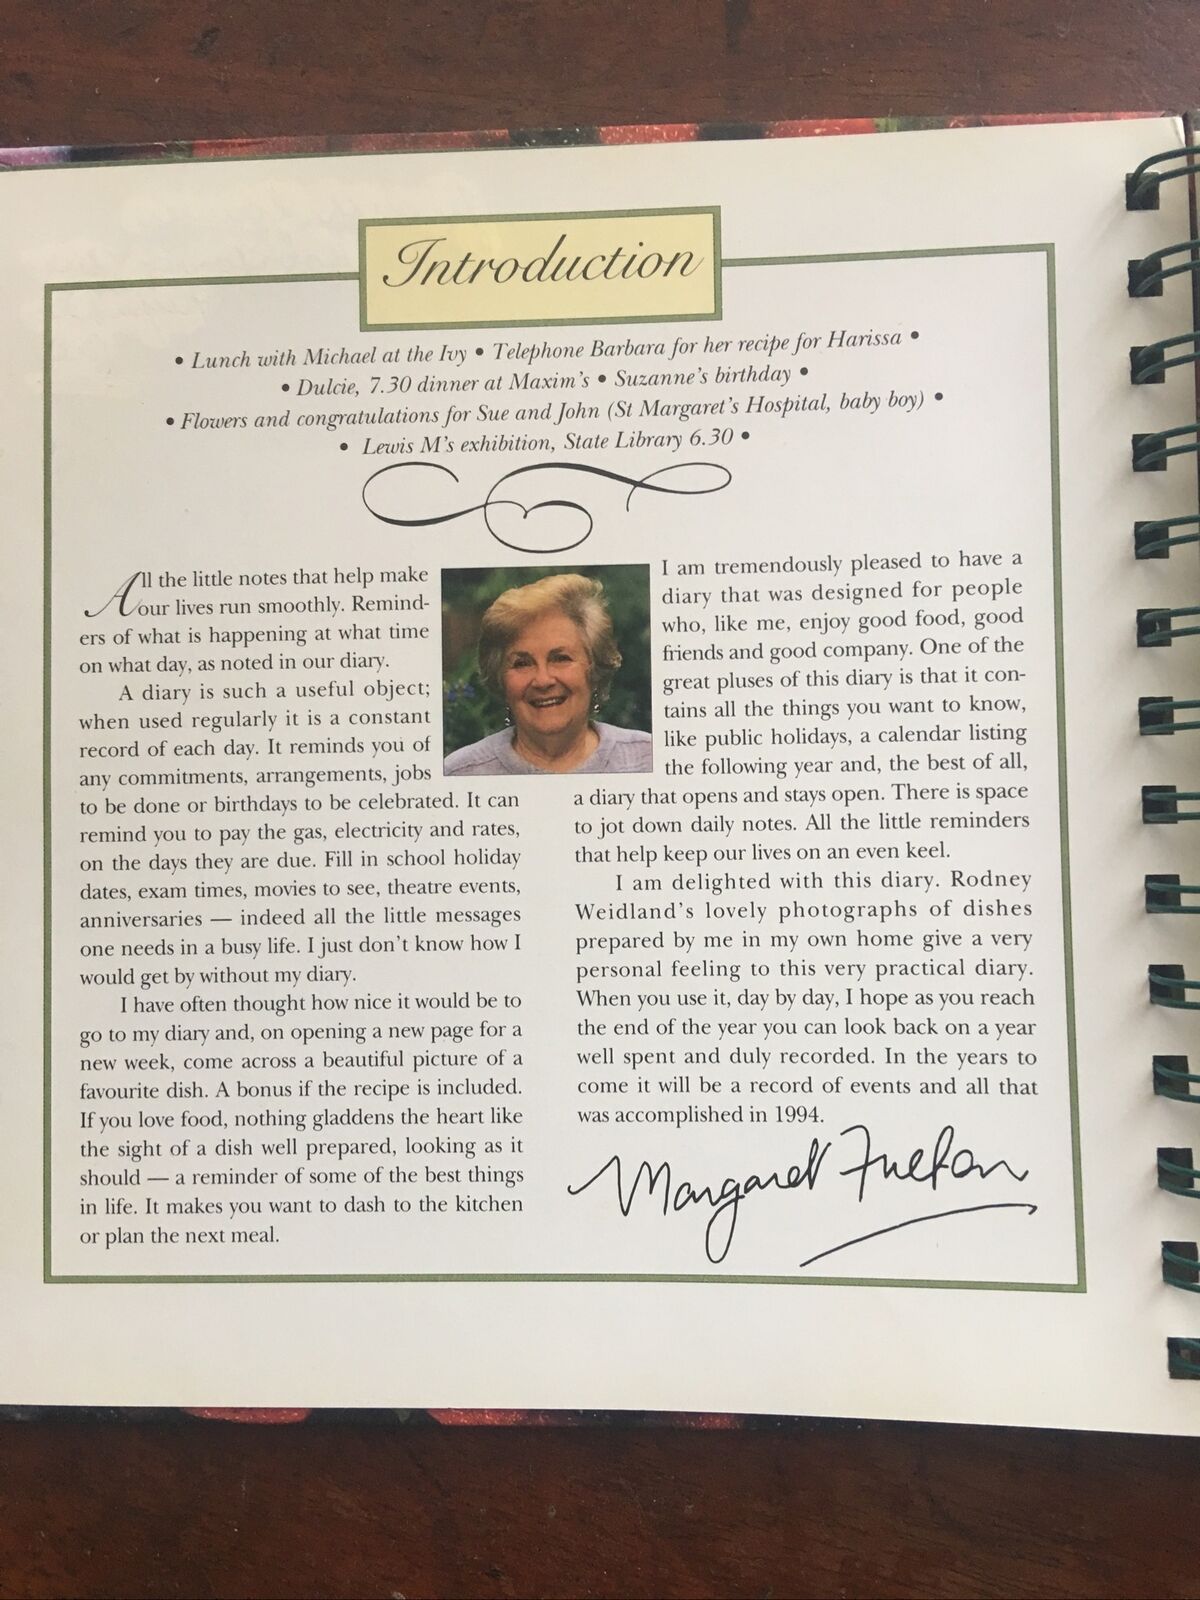 Introduction
• Lunch with Michael at the Ivy • Telephone Barbara for her recipe for Harissa •
• Dulcie, 7.30 dinner at Maxim's • Suzanne's birthday •
• Flowers and congratulations for Sue and John (St Margaret's Hospital, baby boy) •
• Lewis M's exhibition, State Library 6.30 •
All the little notes that help make
our lives run smoothly. Remind-
ers of what is happening at what time
on what day, as noted in our diary.
A diary is such a useful object;
when used regularly it is a constant
record of each day. It reminds you of
any commitments, arrangements, jobs
to be done or birthdays to be celebrated. It can
remind you to pay the gas, electricity and rates,
on the days they are due. Fill in school holiday
dates, exam times, movies to see, theatre events,
anniversaries — indeed all the little messages
one needs in a busy life. I just don't know how I
would get by without my diary.
I have often thought how nice it would be to
go to my diary and, on opening a new page for a
new week, come across a beautiful picture of a
favourite dish. A bonus if the recipe is included.
If you love food, nothing gladdens the heart like
the sight of a dish well prepared, looking as it
should — a reminder of some of the best things
in life. It makes you want to dash to the kitchen
or plan the next meal.
I am tremendously pleased to have a
diary that was designed for people
who, like me, enjoy good food, good
friends and good company. One of the
great pluses of this diary is that it con-
tains all the things you want to know,
like public holidays, a calendar listing
the following year and, the best of all,
a diary that opens and stays open. There is space
to jot down daily notes. All the little reminders
that help keep our lives on an even keel.
I am delighted with this diary. Rodney
Weidland's lovely photographs of dishes
prepared by me in my own home give a very
personal feeling to this very practical diary.
When you use it, day by day, I hope as you reach
the end of the year you can look back on a year
well spent and duly recorded. In the years to
come it will be a record of events and all that
was accomplished in 1994.
Margaret Fulton